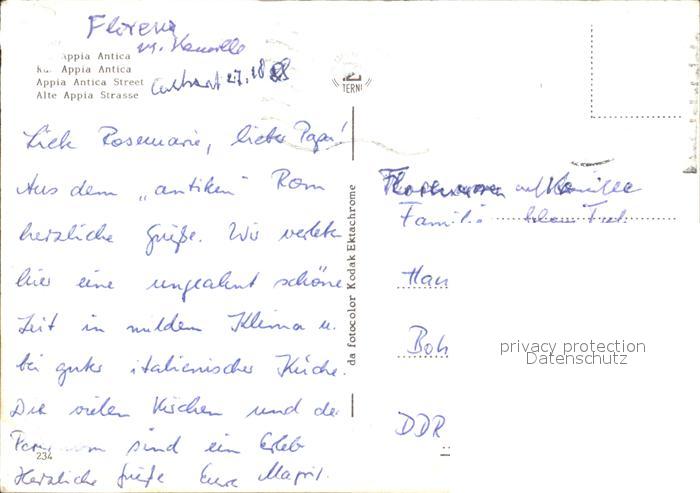 Florenz
m. Kamille
Appia Antica
Appia Antica
Appia Antica Street
Alte Appia Strasse
27.10 88
TERNI
Liebe Rosemarie, lieber Papa!
Aus dem „antiken" Rom
herzliche Grüße. Wir verleben
hier eine ungeahnt schöne
Zeit in mildem Klima u.
bei guter italienischer Küche.
Die vielen Kirchen und das
sind ein Erleb
Herzliche Grüße Eure Magrit.
234
da fotocolor Kodak Ektachrome
Familie
Han
Boh
DDR
privacy protection
Datenschutz